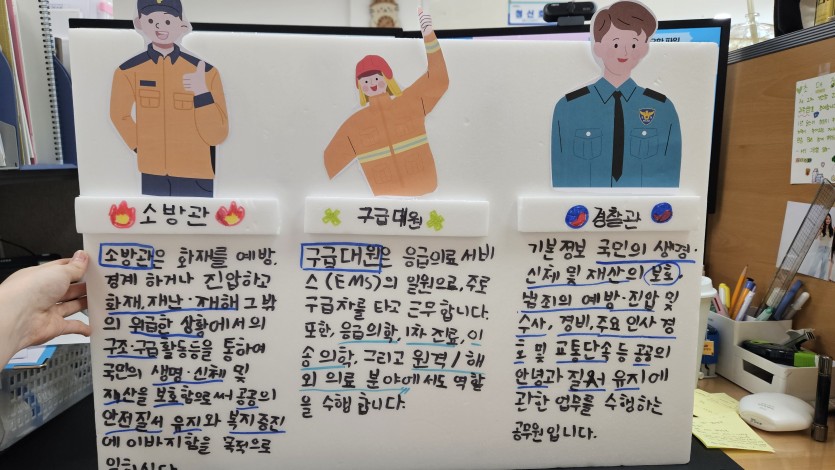 소방관
소방관은 화재를 예방.
경계 하거나 진압하고
화재, 재난·재해 그 밖
의 위급한 상황에서의
구조·구급 활동등을 통하여
국민의 생명·신체 및
재산을 보호함으로써 공공의
안전질서 유지와 복지증진
에 이바지함을 목적으로
구급대원
구급대원은 응급의료 서비
스 (EMS)의 일원으로, 주로
구급차를 타고 근무합니다.
또한, 응급의학, 1차 진료, 이
송의학, 그리고 원격/해
외 의료 분야에서도 역할
을 수행 합니다.
경찰관
기본 정보 국민의 생명·
신체 및 재산의 보호,
범죄의 예방·진압 및
수사, 경비, 주요 인사 경
호 및 교통단속 등 공공의
안녕과 질서 유지에
관한 업무를 수행하는
공무원입니다.